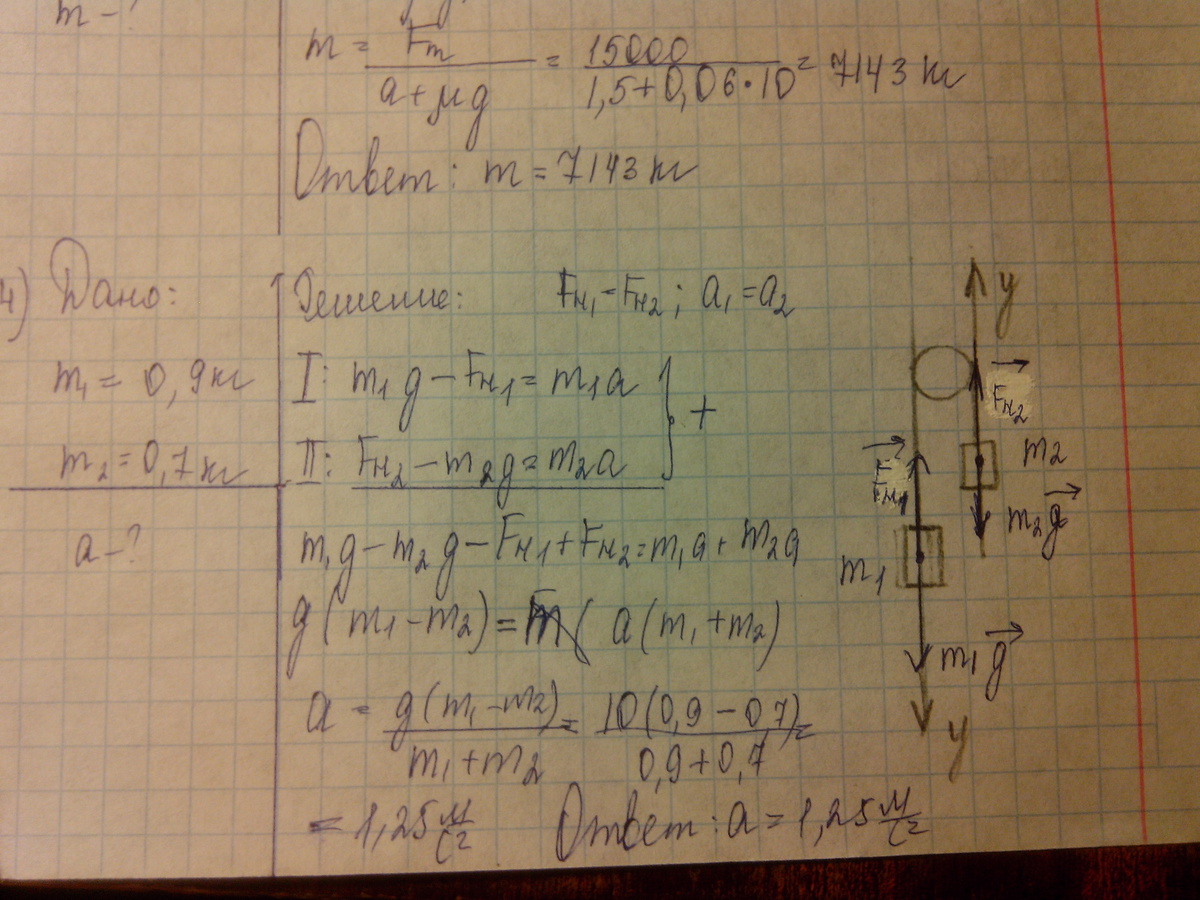 m - ?
m = Fт / (a + μg) = 15000 / (1,5 + 0,06 · 10) = 7143 кг
Ответ: m = 7143 кг
4) Дано:
m₁ = 0,9 кг
m₂ = 0,7 кг
a - ?
Решение: Fн₁ = Fн₂ ; a₁ = a₂
I: m₁g - Fн₁ = m₁a } +
II: Fн₂ - m₂g = m₂a
m₁g - m₂g - Fн₁ + Fн₂ = m₁a + m₂a
g(m₁ - m₂) = a(m₁ + m₂)
a = g(m₁ - m₂) / (m₁ + m₂) = 10(0,9 - 0,7) / (0,9 + 0,7) =
= 1,25 м/с² Ответ: a = 1,25 м/с²
y
Fн₂
m₂
Fн₁
m₂g
m₁
m₁g
y